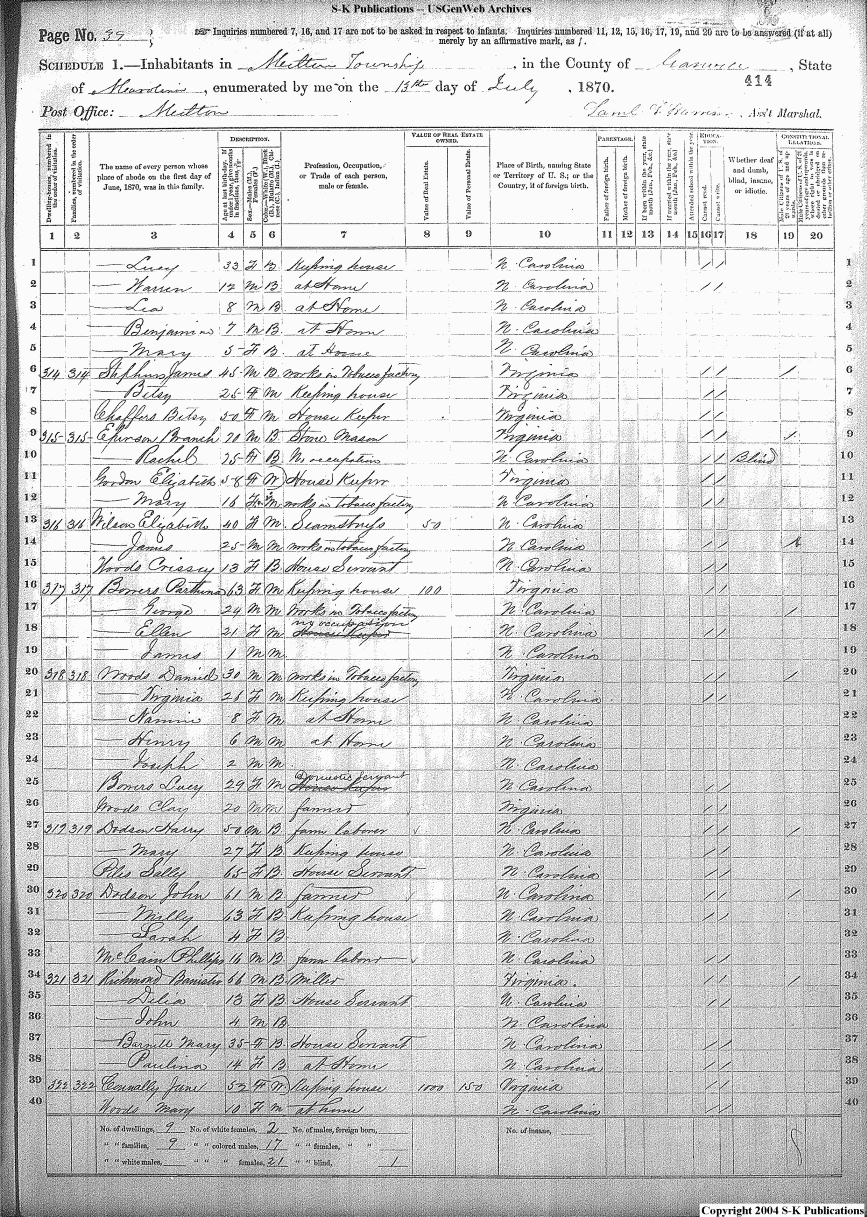 S-K Publications -- USGenWeb Archives
Page No. 39
Inquiries numbered 7, 16, and 17 are not to be asked in respect to infants. Inquiries numbered 11, 12, 15, 16, 17, 19, and 20 are to be answered (if at all)
merely by an affirmative mark, as /.
SCHEDULE 1.—Inhabitants in Milton Township, in the County of Caswell, State
of N Carolina, enumerated by me on the 13th day of July, 1870. 414
Post Office: Milton Ass't Marshal.
DESCRIPTION. VALUE OF REAL ESTATE OWNED. PARENTAGE. EDUCATION. CONSTITUTIONAL RELATIONS.
Dwelling-houses, numbered in the order of visitation.
Families, numbered in the order of visitation.
The name of every person whose place of abode on the first day of June, 1870, was in this family.
Profession, Occupation, or Trade of each person, male or female.
Value of Real Estate.
Value of Personal Estate.
Place of Birth, naming State or Territory of U. S.; or the Country, if of foreign birth.
Father of foreign birth.
Mother of foreign birth.
Attended school within the year.
Cannot read.
Cannot write.
Whether deaf and dumb, blind, insane, or idiotic.
1 2 3 4 5 6 7 8 9 10 11 12 13 14 15 16 17 18 19 20
1 — Lucy 33 F B Keeping house N. Carolina / / 1
2 — Warren 12 M B at Home N. Carolina / / 2
3 — Lea 8 M B at Home N. Carolina 3
4 — Benjamin 7 M B at Home N. Carolina 4
5 — Mary 5 F B at Home N. Carolina 5
6 314 314 Stephens James 45 M B works in Tobacco factory Virginia / / / 6
7 — Betsy 25 F M Keeping house Virginia / / 7
8 Chaffers Betsy 50 F M House Keeper Virginia / / 8
9 315 315 Eperson Branch 70 M B Stone Mason Virginia / / / 9
10 — Rachel 75 F B No occupation N. Carolina / / Blind 10
11 Gordon Elizabeth 58 F W House Keeper Virginia / / 11
12 — Mary 16 F M works in tobacco factory N. Carolina / / 12
13 316 316 Wilson Elizabeth 40 F M Seamstress 50 N. Carolina 13
14 — James 25 M M works in tobacco factory N. Carolina / / 14
15 Woods Crissey 13 F B House Servant N. Carolina / / 15
16 317 317 Bowers Parthena 63 F M Keeping house 100 Virginia / / 16
17 — George 24 M M Works in Tobacco factory N. Carolina / 17
18 — Ellen 21 F M no occupation House Keeper N. Carolina / / 18
19 — James 1 M M N. Carolina 19
20 318 318 Woods Daniel 30 M M works in Tobacco factory Virginia / / / 20
21 — Virginia 26 F M Keeping house N. Carolina / / 21
22 — Nannie 8 F M at Home N. Carolina 22
23 — Henry 6 M M at Home N. Carolina 23
24 — Joseph 2 M M N. Carolina 24
25 Bowers Lucy 29 F M Domestic Servant House Keeper N. Carolina / / 25
26 Woods Clay 20 M farmer Virginia 26
27 319 319 Dodson Harry 50 M B farm laborer N. Carolina / / / 27
28 — Mary 27 F B Keeping house N. Carolina / / 28
29 Sally 65 F B House Servant N. Carolina / / 29
30 320 320 Dodson John 61 M B farmer N. Carolina / / / 30
31 — Milly 63 F B Keeping house N. Carolina / / 31
32 — Sarah 4 F B N. Carolina 32
33 McCain Phillips 16 M B farm labour N. Carolina / / 33
34 321 321 Richmond Banister 66 M B Miller Virginia / / / 34
35 — Delia 13 F B House Servant N. Carolina / / 35
36 — John 4 M B N. Carolina 36
37 — Barnett Mary 35 F B House Servant N. Carolina / / 37
38 — Paulina 14 F B at Home N. Carolina / / 38
39 322 322 Connally Jane 52 F W Keeping house 1000 150 Virginia / / 39
40 Woods Mary 10 F M at home N. Carolina / / 40
No. of dwellings, 9 No. of white females, 2 No. of males, foreign born, No. of insane,
" " families, 9 " " colored males, 17 " " females, " "
" " white males, " " females, 21 " " blind, 1
Copyright 2004 S-K Publications